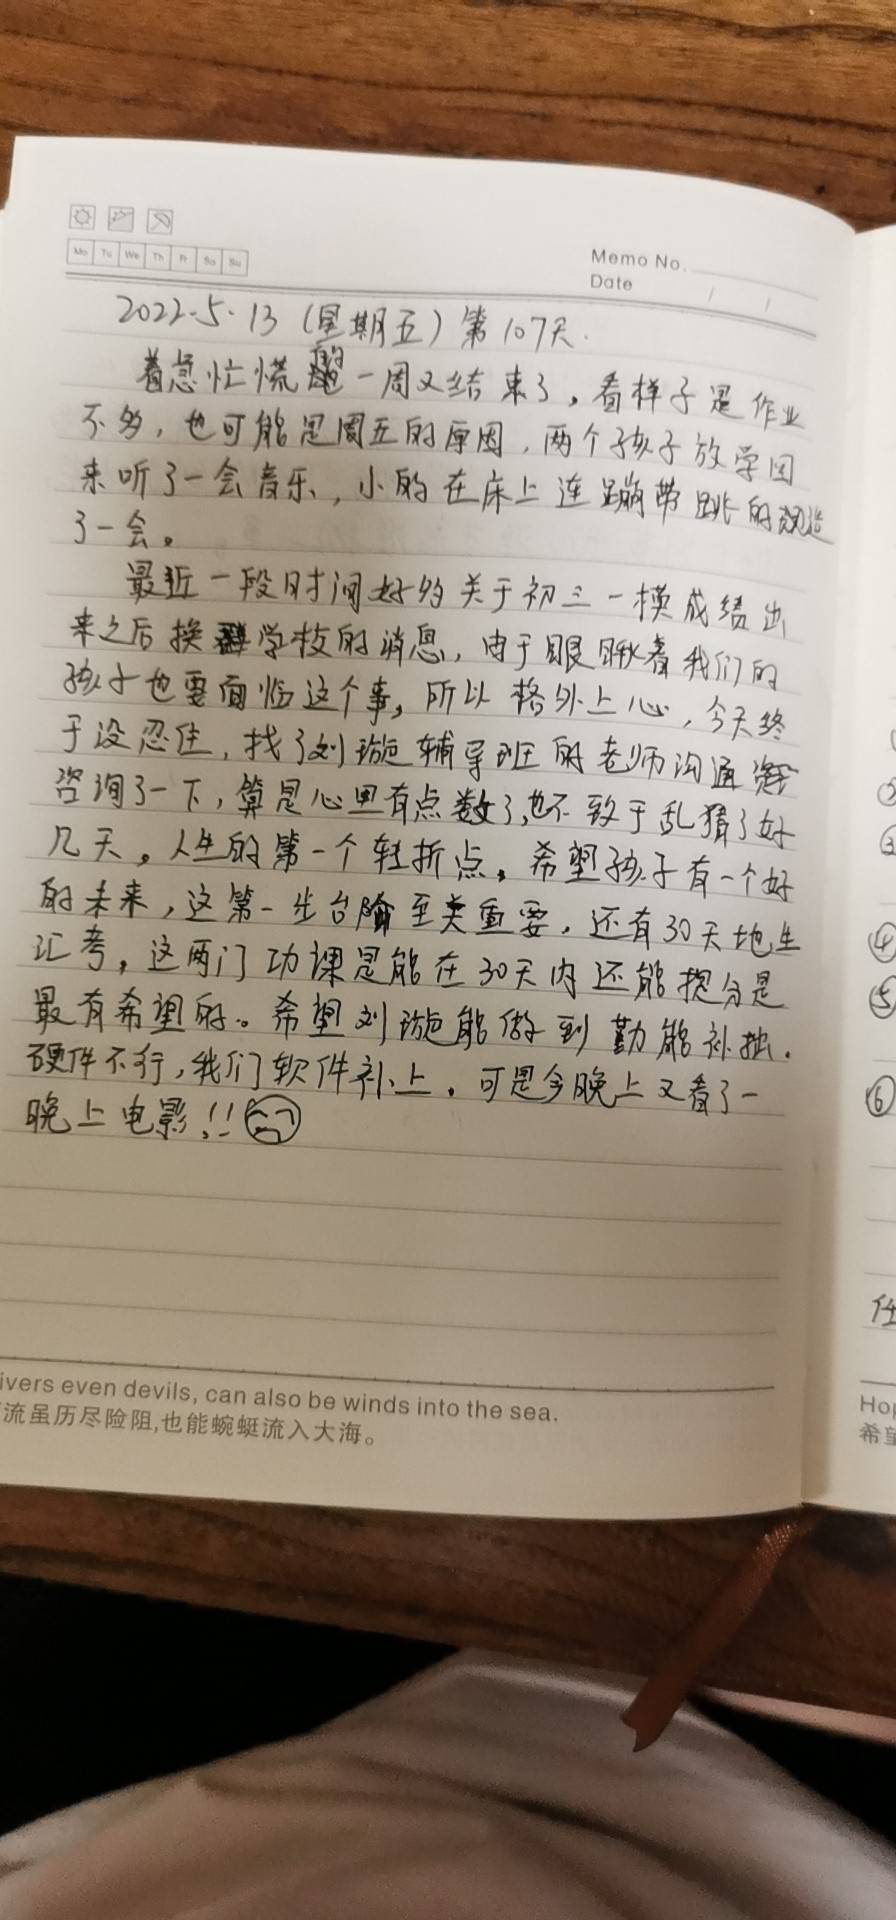 Mo Tu We Th Fr Sa Su
Memo No.
Date / /
2022.5.13（星期五）第107天.
着急忙慌的一周又结束了，看样子是作业
不多，也可能是周五的原因，两个孩子放学回
来听了一会音乐，小的在床上连蹦带跳的
了一会。
最近一段时间好多关于初三一模成绩出
来之后换学校的消息，由于眼瞅着我们的
孩子也要面临这个事，所以格外上心，今天终
于没忍住，找了刘璇辅导班的老师沟通
咨询了一下，算是心里有点数了，也不致于乱猜了好
几天。人生的第一个转折点。希望孩子有一个好
的未来，这第一步台阶至关重要，还有30天地生
汇考，这两门功课是能在30天内还能提分是
最有希望的。希望刘璇能做到勤能补拙.
硬件不行，我们软件补上。可是今晚上又看了一
晚上电影！！
ivers even devils, can also be winds into the sea.
流虽历尽险阻,也能蜿蜒流入大海。
④
⑤
⑥
任
Hop
希望